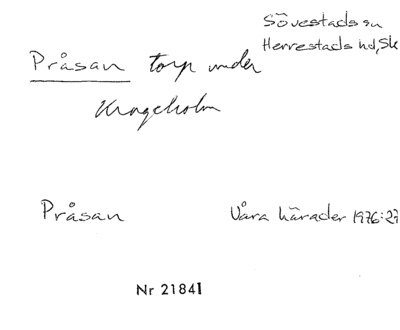 Sövestads sn
Herrestads hd, Sk
Pråsan torp under
Krageholm
Pråsan
Våra härader 1976:27
Nr 21841